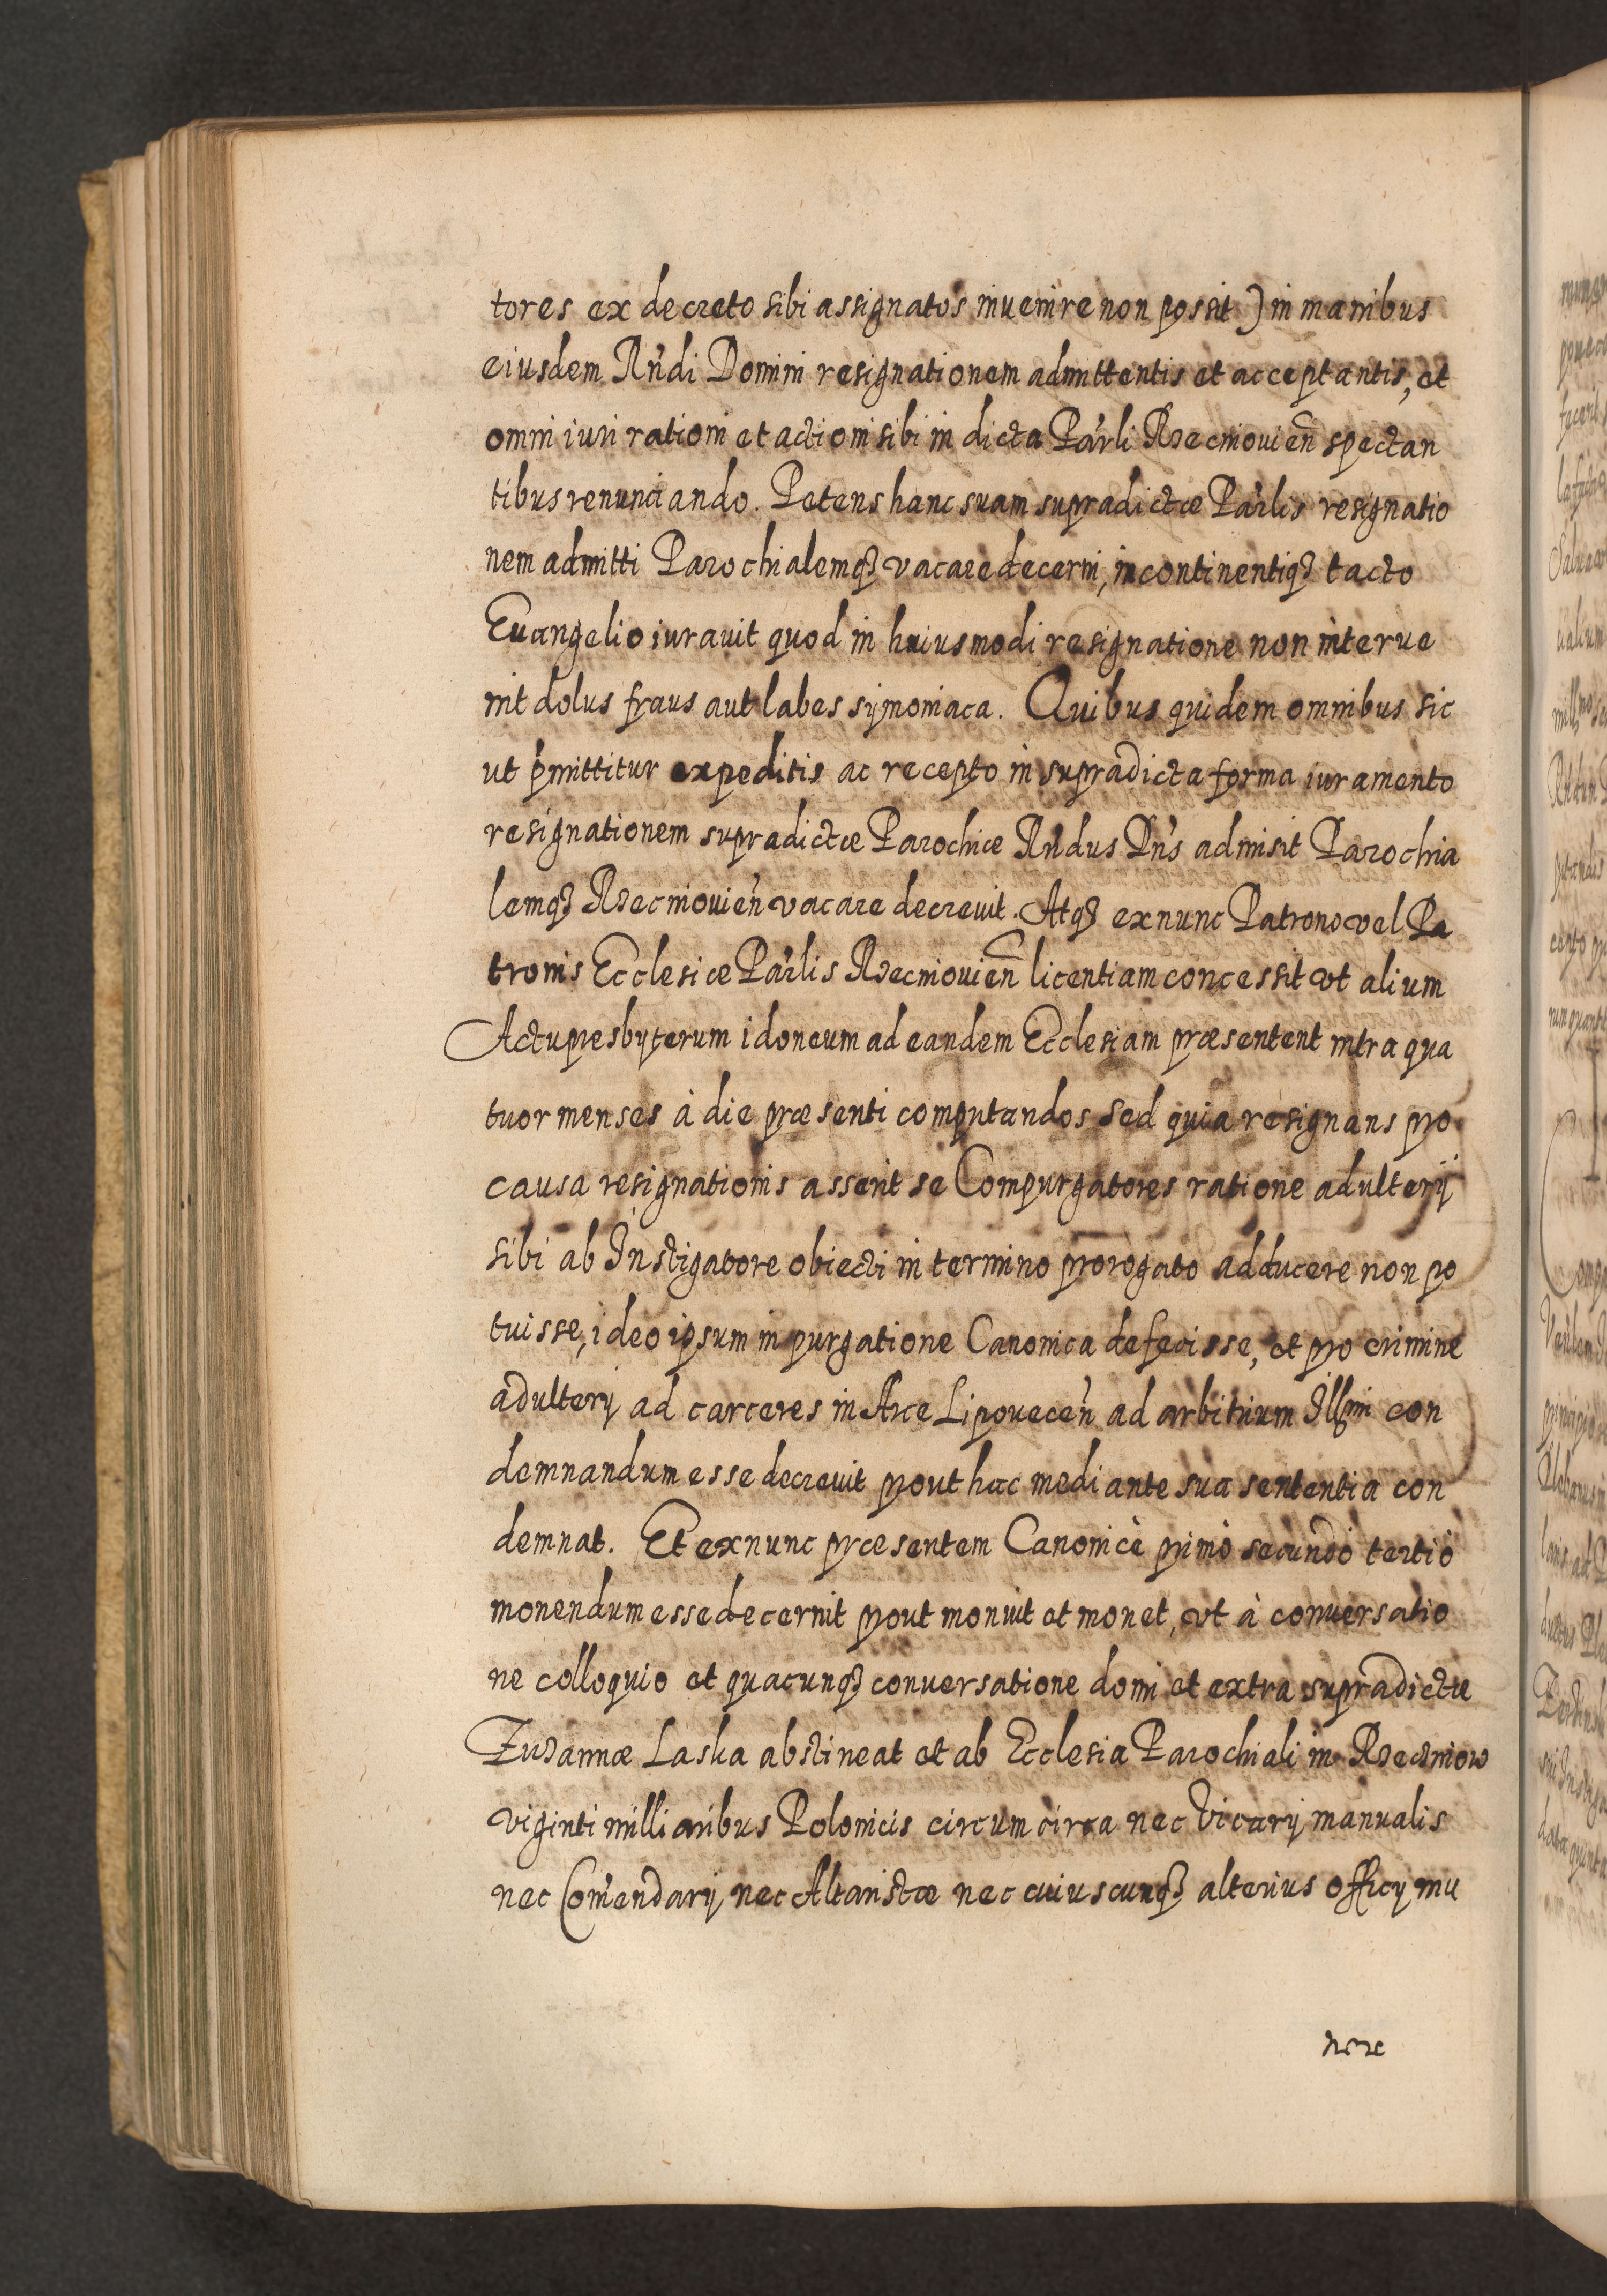 tores ex decreto sibi assignatos inuenire non possit) in manibus
eiusdem Rńdi Domini resignationem admittentis et acceptantis, et
omni iuri rationi et actioni sibi in dicta Parli Rzecniouień spectan
tibus renunciando. Petens hanc suam supradictæ Parlis resignatio
nem admitti Parochialemqꝫ vacare decerni, incontinentiqꝫ tacto
Euangelio iurauit quod in huiusmodi resignatione non interue
nit dolus fraus aut labes symoniaca. Quibus quidem omnibus sic
ut p̄mittitur expeditis ac recepto in supradicta forma iuramento
resignationem supradictæ Parochiæ Rńdus Dńs admisit Parochia
lemqꝫ Rzecniouień vacare decreuit. Atqꝫ exnunc Patrono vel Pa
tronis Ecclesiæ Parlis Rzecniouień licentiam concessit vt alium
Actupresbyterum idoneum ad eandem Ecclesiam præsentent intra qua
tuor menses à die præsenti computandos sed quia resignans pro
causa resignationis asserit se Compurgatores ratione adulterij
sibi ab Instigatore obiecti in termino prorogato adducere non po
tuisse, ideo ipsum in purgatione Canonica defecisse, et pro crimine
adulterij ad carceres in Arce Lipoueceń ad arbitrium Illmi con
demnandum esse decreuit prout hac mediante sua sententia con
demnat. Et exnunc præsentem Canonicè primò secundò tertiò
monendum esse decernit prout monuit et monet, vt à conuersatio
ne colloquio et quacunqꝫ conuersatione domi et extra supradictæ
Zuzannæ Laska abstineat et ab Ecclesia Parochiali in Rzeczniow
viginti milliaribus Polonicis circumcirca nec Vicarij manualis
nec Comendarij nec Altaristæ nec cuiuscunqꝫ alterius officij mu